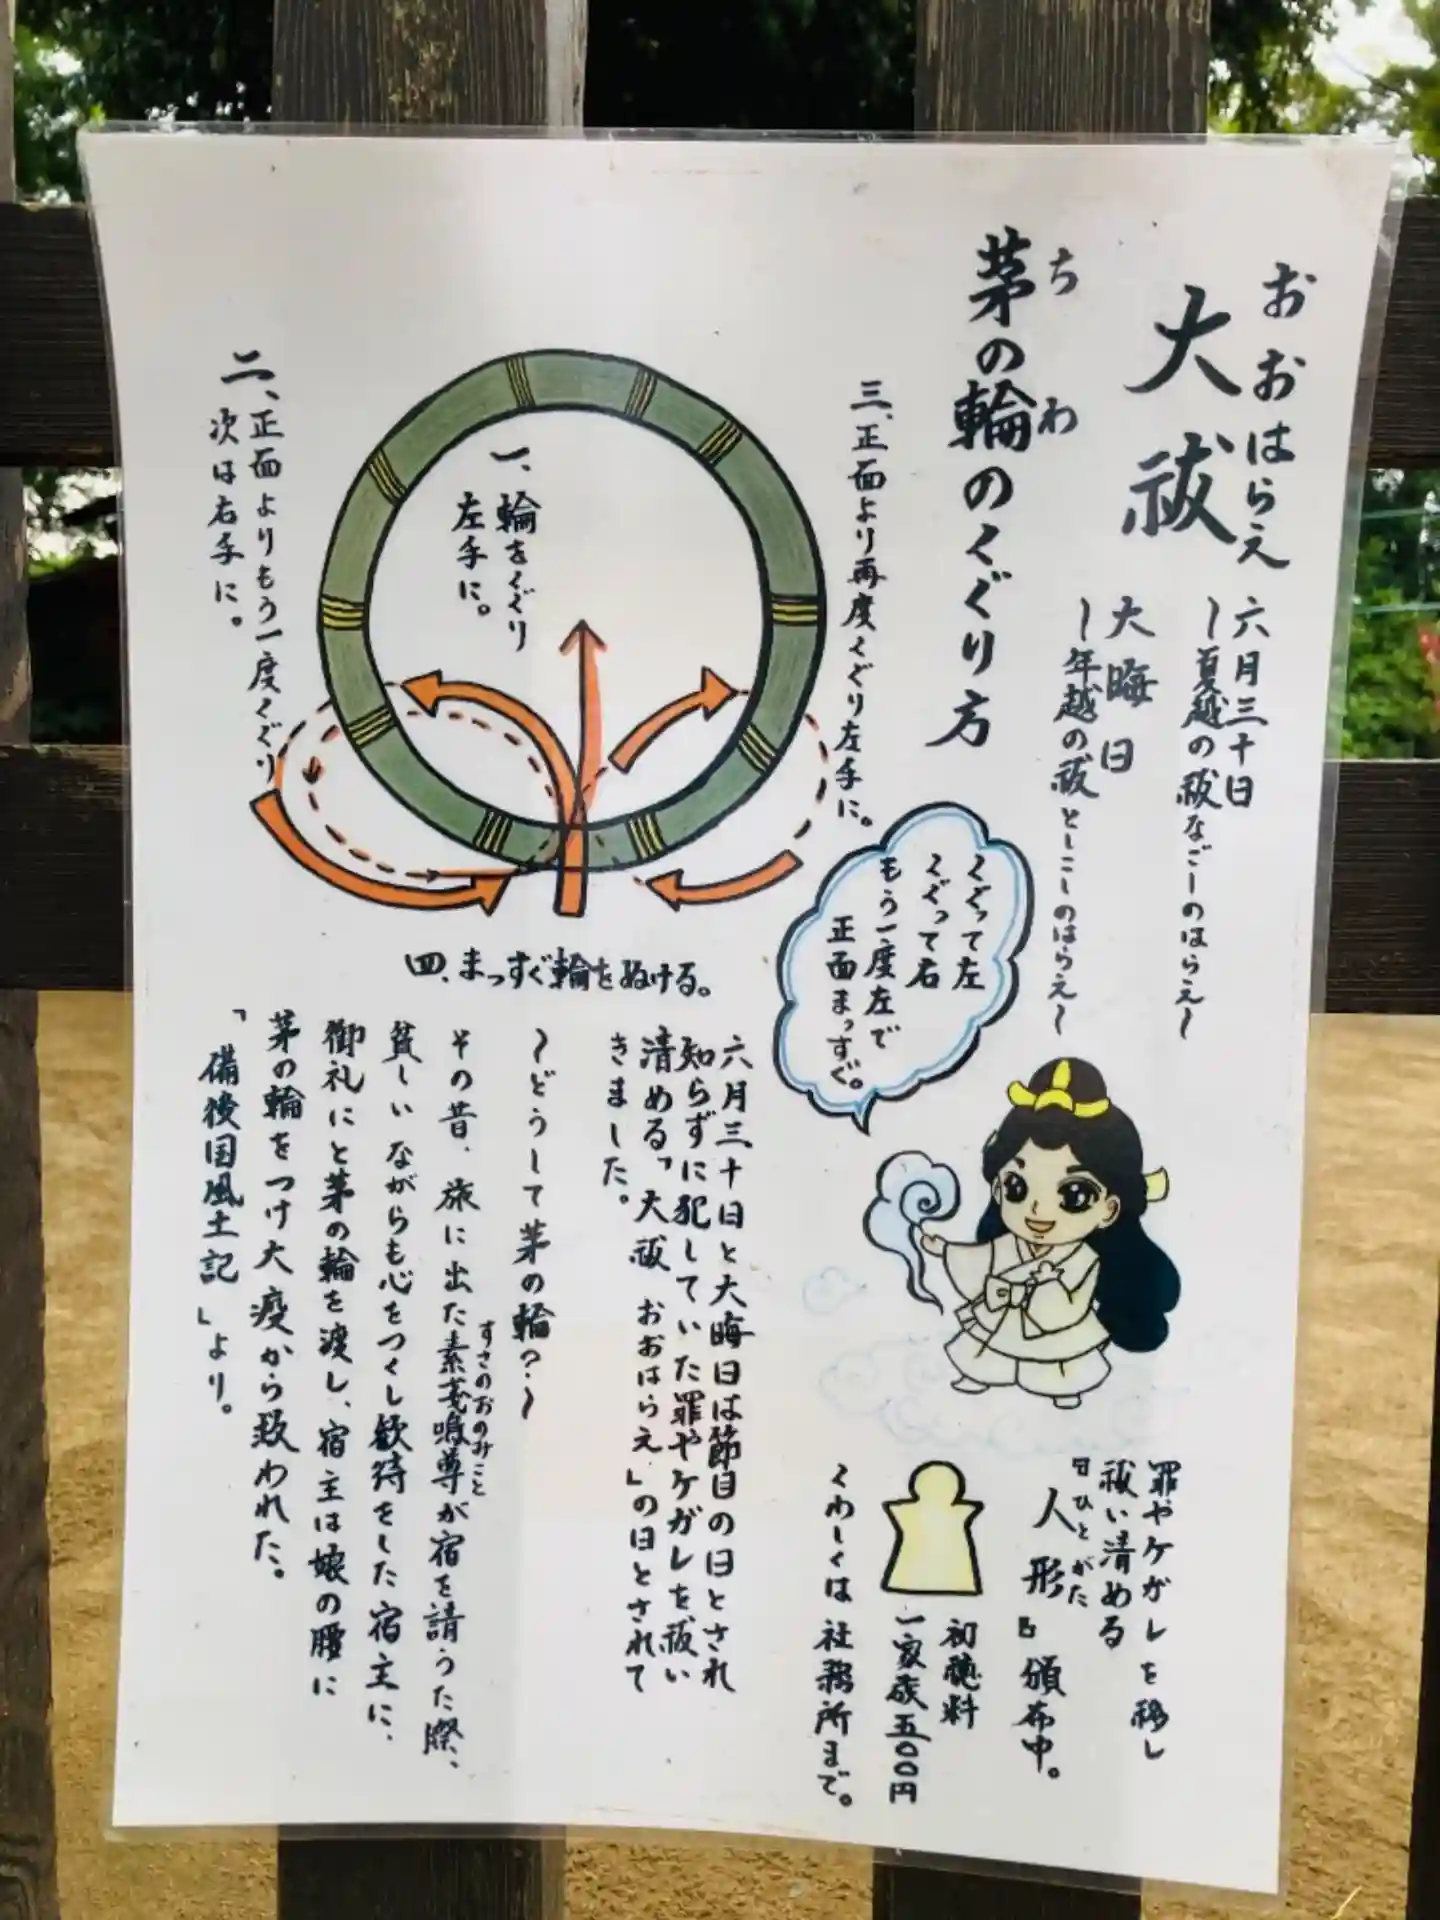 おおはらえ
大祓
六月三十日
〜夏越の祓なごーのはらえ〜
大晦日
〜年越の祓としこしのはらえ〜
ちのわ
茅の輪のくぐり方
一、輪をくぐり
左手に。
二、正面よりもう一度くぐり
次は右手に。
三、正面より再度くぐり左手に。
四、まっすぐ輪をぬける。
くぐって左
くぐって右
もう一度左で
正面まっすぐ。
六月三十日と大晦日は節目の日とされ
知らずに犯していた罪やケガレを祓い
清める「大祓 おおはらえ」の日とされて
きました。
〜どうして茅の輪?〜
その昔、旅に出た素戔嗚尊が宿を請うた際、
すさのおのみこと
貧しいながらも心をつくし歓待をした宿主に、
御礼にと茅の輪を渡し、宿主は娘の腰に
茅の輪をつけ大疫から救われた。
「備後国風土記」より。
罪やケガレを移し
祓い清める
『人形』頒布中。
ひとがた
初穂料
一家族五〇〇円
くわしくは社務所まで。